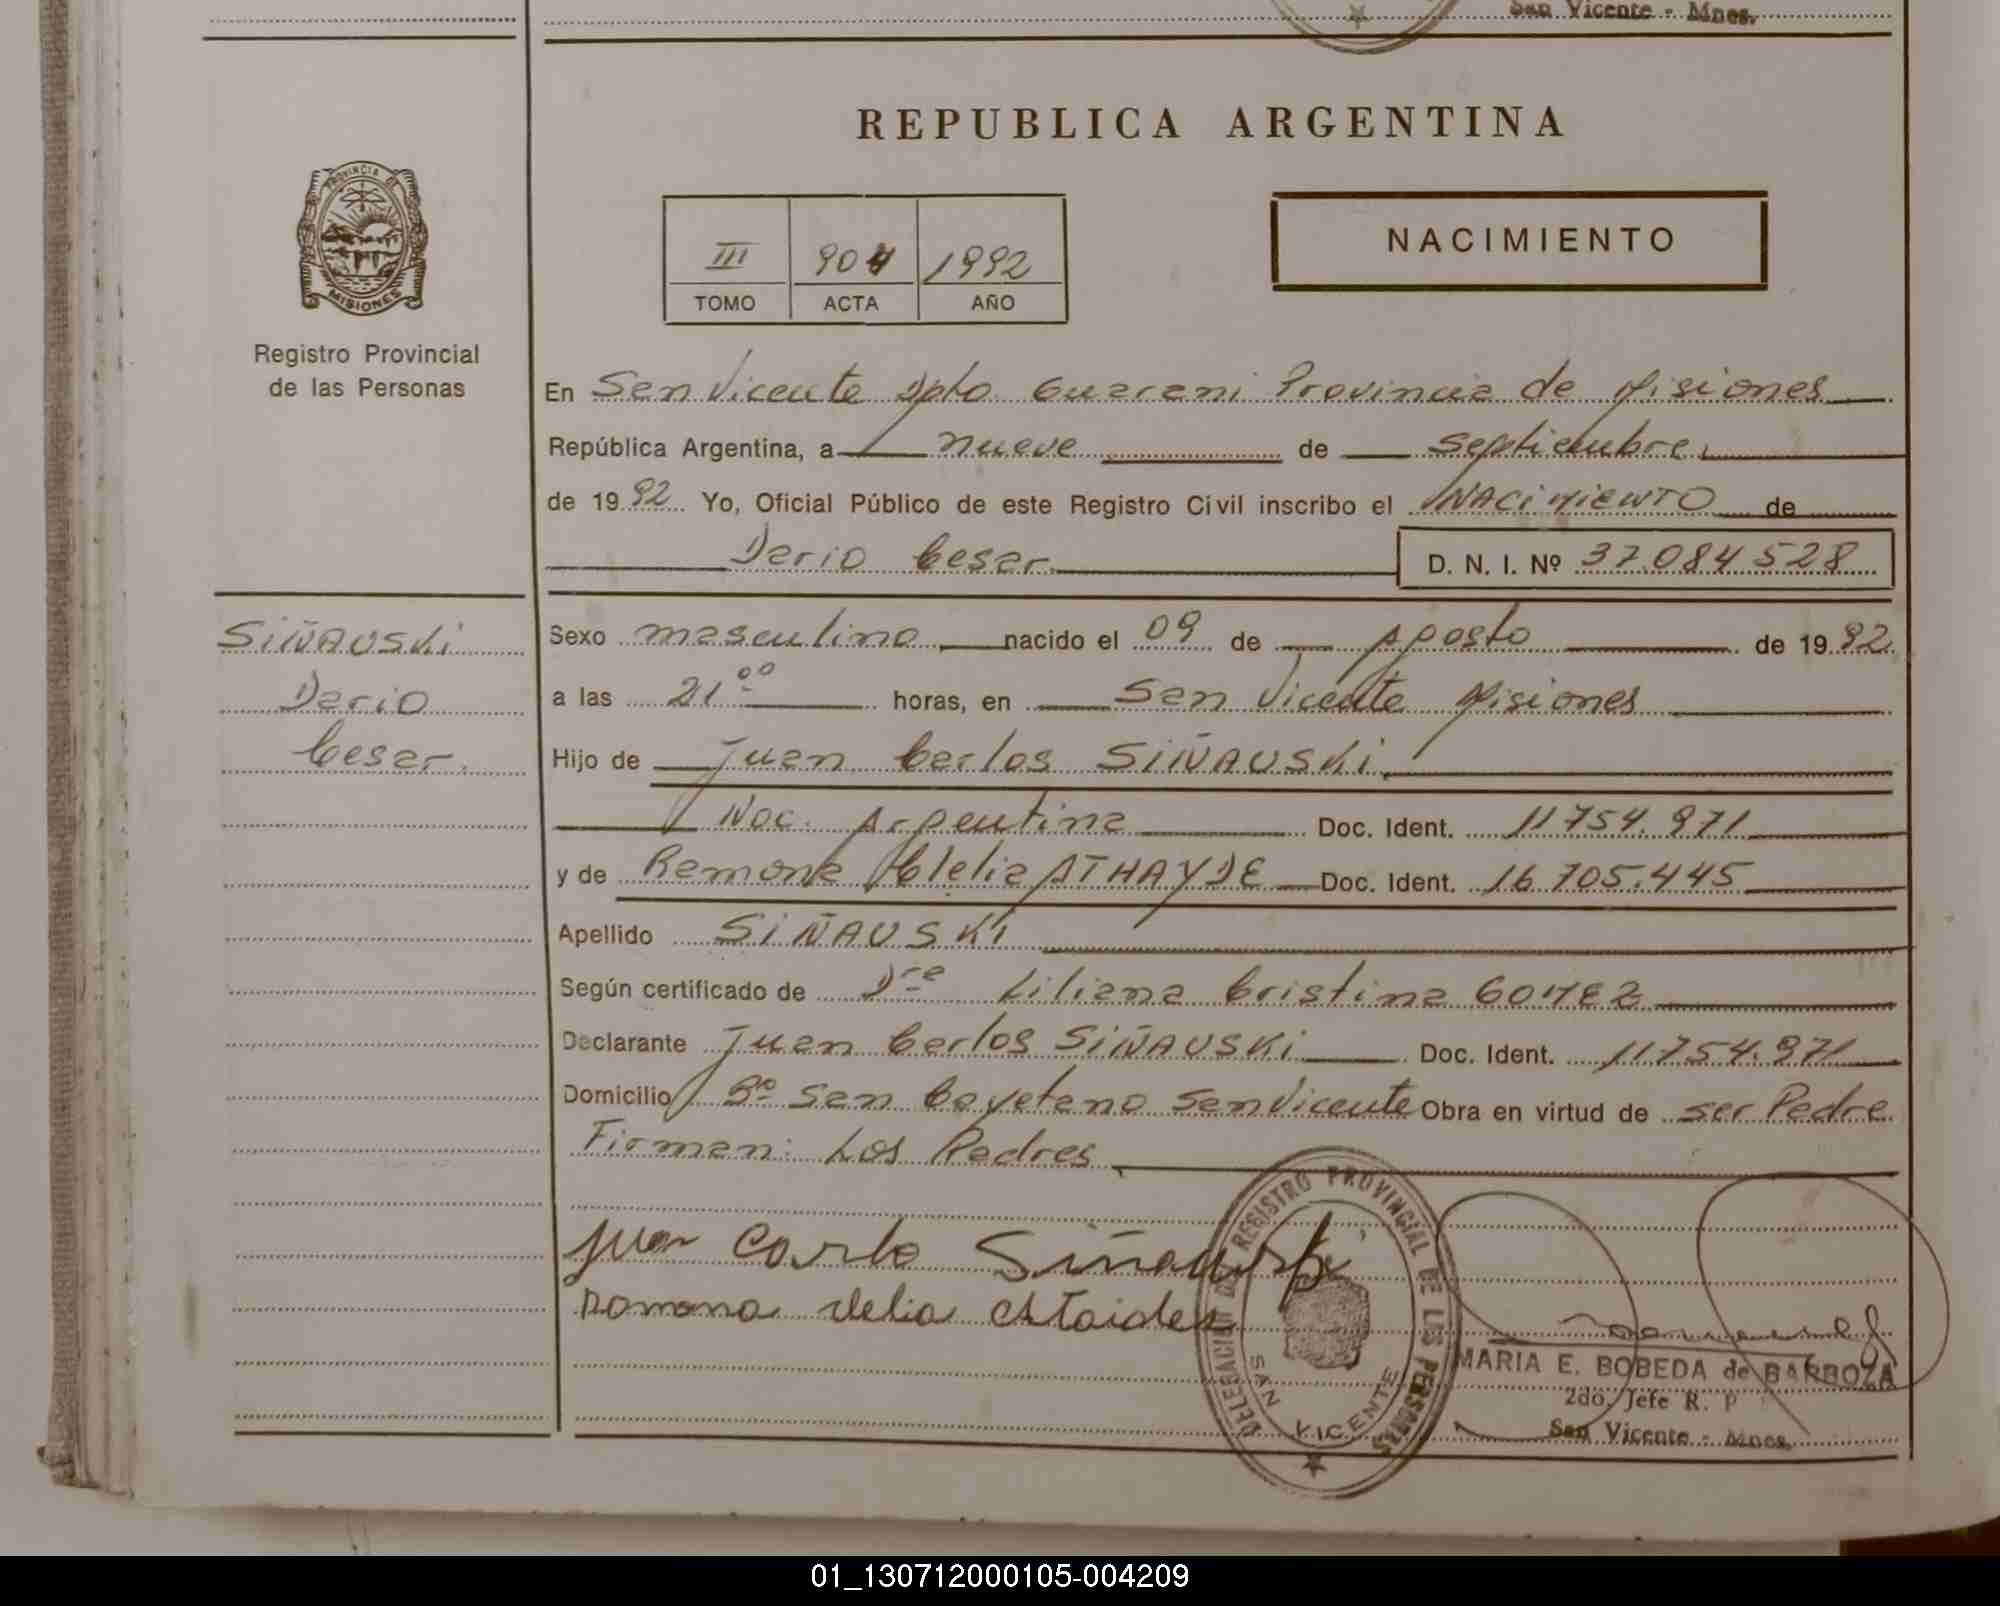 San Vicente - Mnes.
REPUBLICA ARGENTINA
PROVINCIA DE
MISIONES
Registro Provincial
de las Personas
III 904 1992
TOMO ACTA AÑO
NACIMIENTO
En San Vicente Dpto. Guarani Provincia de Misiones
República Argentina, a nueve de septiembre
de 1992 Yo, Oficial Público de este Registro Civil inscribo el NACIMIENTO de
Dario Cesar D. N. I. Nº 37.084.528
SIÑAUSKi
Dario
Cesar.
Sexo masculino nacido el 09 de Agosto de 1992
a las 21°° horas, en San Vicente Misiones
Hijo de Juan Carlos SIÑAUSKi
Nac. Argentina Doc. Ident. 11.754.971
y de Ramona Clelia ATHAYDE Doc. Ident. 16.705.445
Apellido SIÑAUSKI
Según certificado de Dra Liliana Cristina GOMEZ
Declarante Juan Carlos SIÑAUSKi Doc. Ident. 11.754.971
Domicilio Bº San Cayetano San Vicente Obra en virtud de ser Padre
Firman: Los Padres
Juan Carlo Siñauski
Ramona Clelia Ataides
DELEGACION DEL REGISTRO PROVINCIAL DE LAS PERSONAS
SAN VICENTE
MARIA E. BOBEDA de BARBOZA
2do. Jefe R. P
San Vicente - Mnes.
01_130712000105-004209